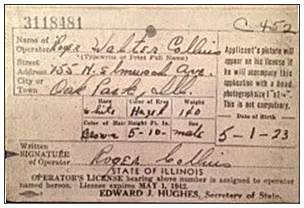 3118481
C 452
Name of Operator Roger Walter Collins
(Typewrite or Print Full Name)
Street Address 455 N. Elmwood Ave.
City or Town Oak Park, Ill.
Race Color of Eyes Weight
White Hazel 140
Color of Hair Height Ft. In. Sex
Brown 5-10- male
Applicant's picture will appear on his license if he will accompany this application with a good photographic size 1" x 1¼". This is not compulsory.
Date of Birth
5-1-23
Written SIGNATURE of Operator Roger Collins
STATE OF ILLINOIS
OPERATOR'S LICENSE bearing above number is assigned to operator
named hereon. License expires MAY 1, 1942.
EDWARD J. HUGHES, Secretary of State.